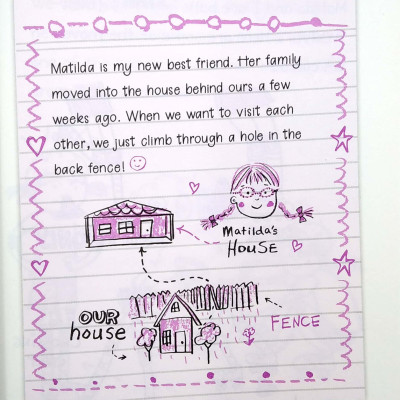 Matilda is my new best friend. Her family
moved into the house behind ours a few
weeks ago. When we want to visit each
other, we just climb through a hole in the
back fence!
Matilda's
HOUSE
OUR
house
FENCE